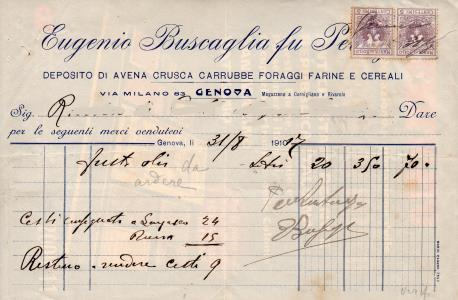 Eugenio Buscaglia fu Pe
DEPOSITO DI AVENA CRUSCA CARRUBBE FORAGGI FARINE E CEREALI
VIA MILANO 63 GENOVA Magazzeno a Cornigliano e Rivarolo
Sig. Dare
per le seguenti merci vendutevi
Genova, li 31/8 1910 17
olio da 20 350 70.
ardere
Cesti consegnati a 24
15
Restano a rendere cesti 9